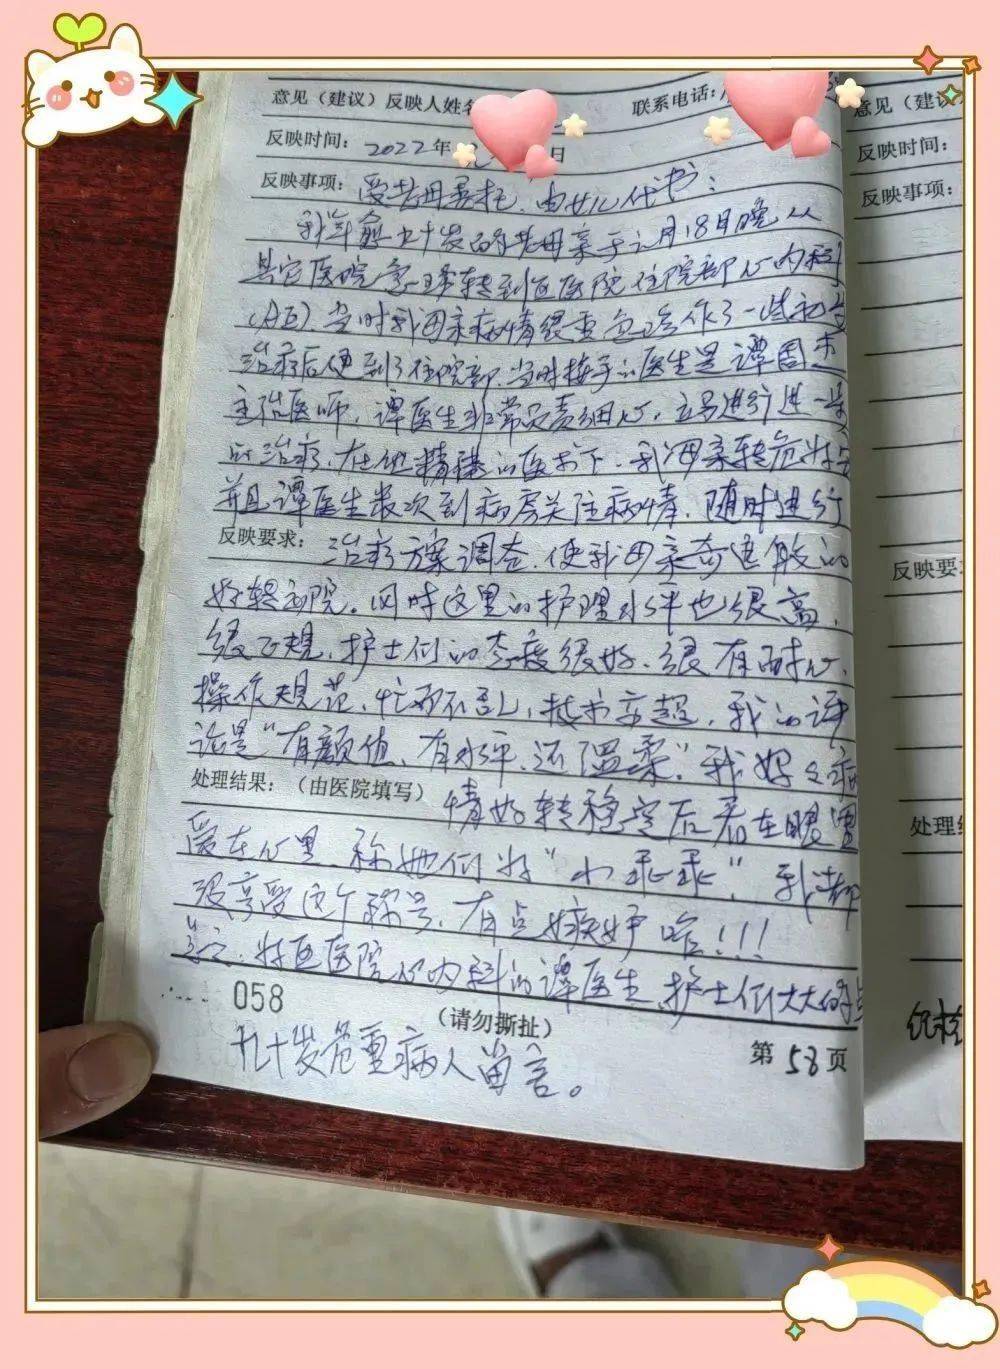 意见（建议）反映人姓名 联系电话：
反映时间：2022年 日
反映事项：受老母委托，由女儿代书：
我年愈九十岁的老母亲于 月18日晚从
其它医院急 转到区医院住院部心内科
当时我母亲病情很重急诊作了一些初步
治疗后便到了住院部，当时接手的医生是谭周
主治医师，谭医生非常负责细心，立马进行进一步
的治疗，在他精湛的医术下，我母亲转危为安
并且谭医生数次到病房关注病情，随时进行
反映要求：治疗方案调查，使我母亲奇迹般的
好转出院。同时这里的护理水平也很高，
很正规，护士们的态度很好、很有耐心，
操作规范，忙而不乱，技术 超，我的评
论是“有颜值、有水平、还温柔”。我妈 病
处理结果：（由医院填写） 情好转稳定后看在眼里
爱在心里，称她们为“小乖乖”，我都
没享受这个称号，有点嫉妒哈！！！
区医院心内科的谭医生、护士们大大的
058
（请勿撕扯）
第58页
九十岁危重病人留言。
意见（建议
反映时间：
反映事项：
反映要
处理